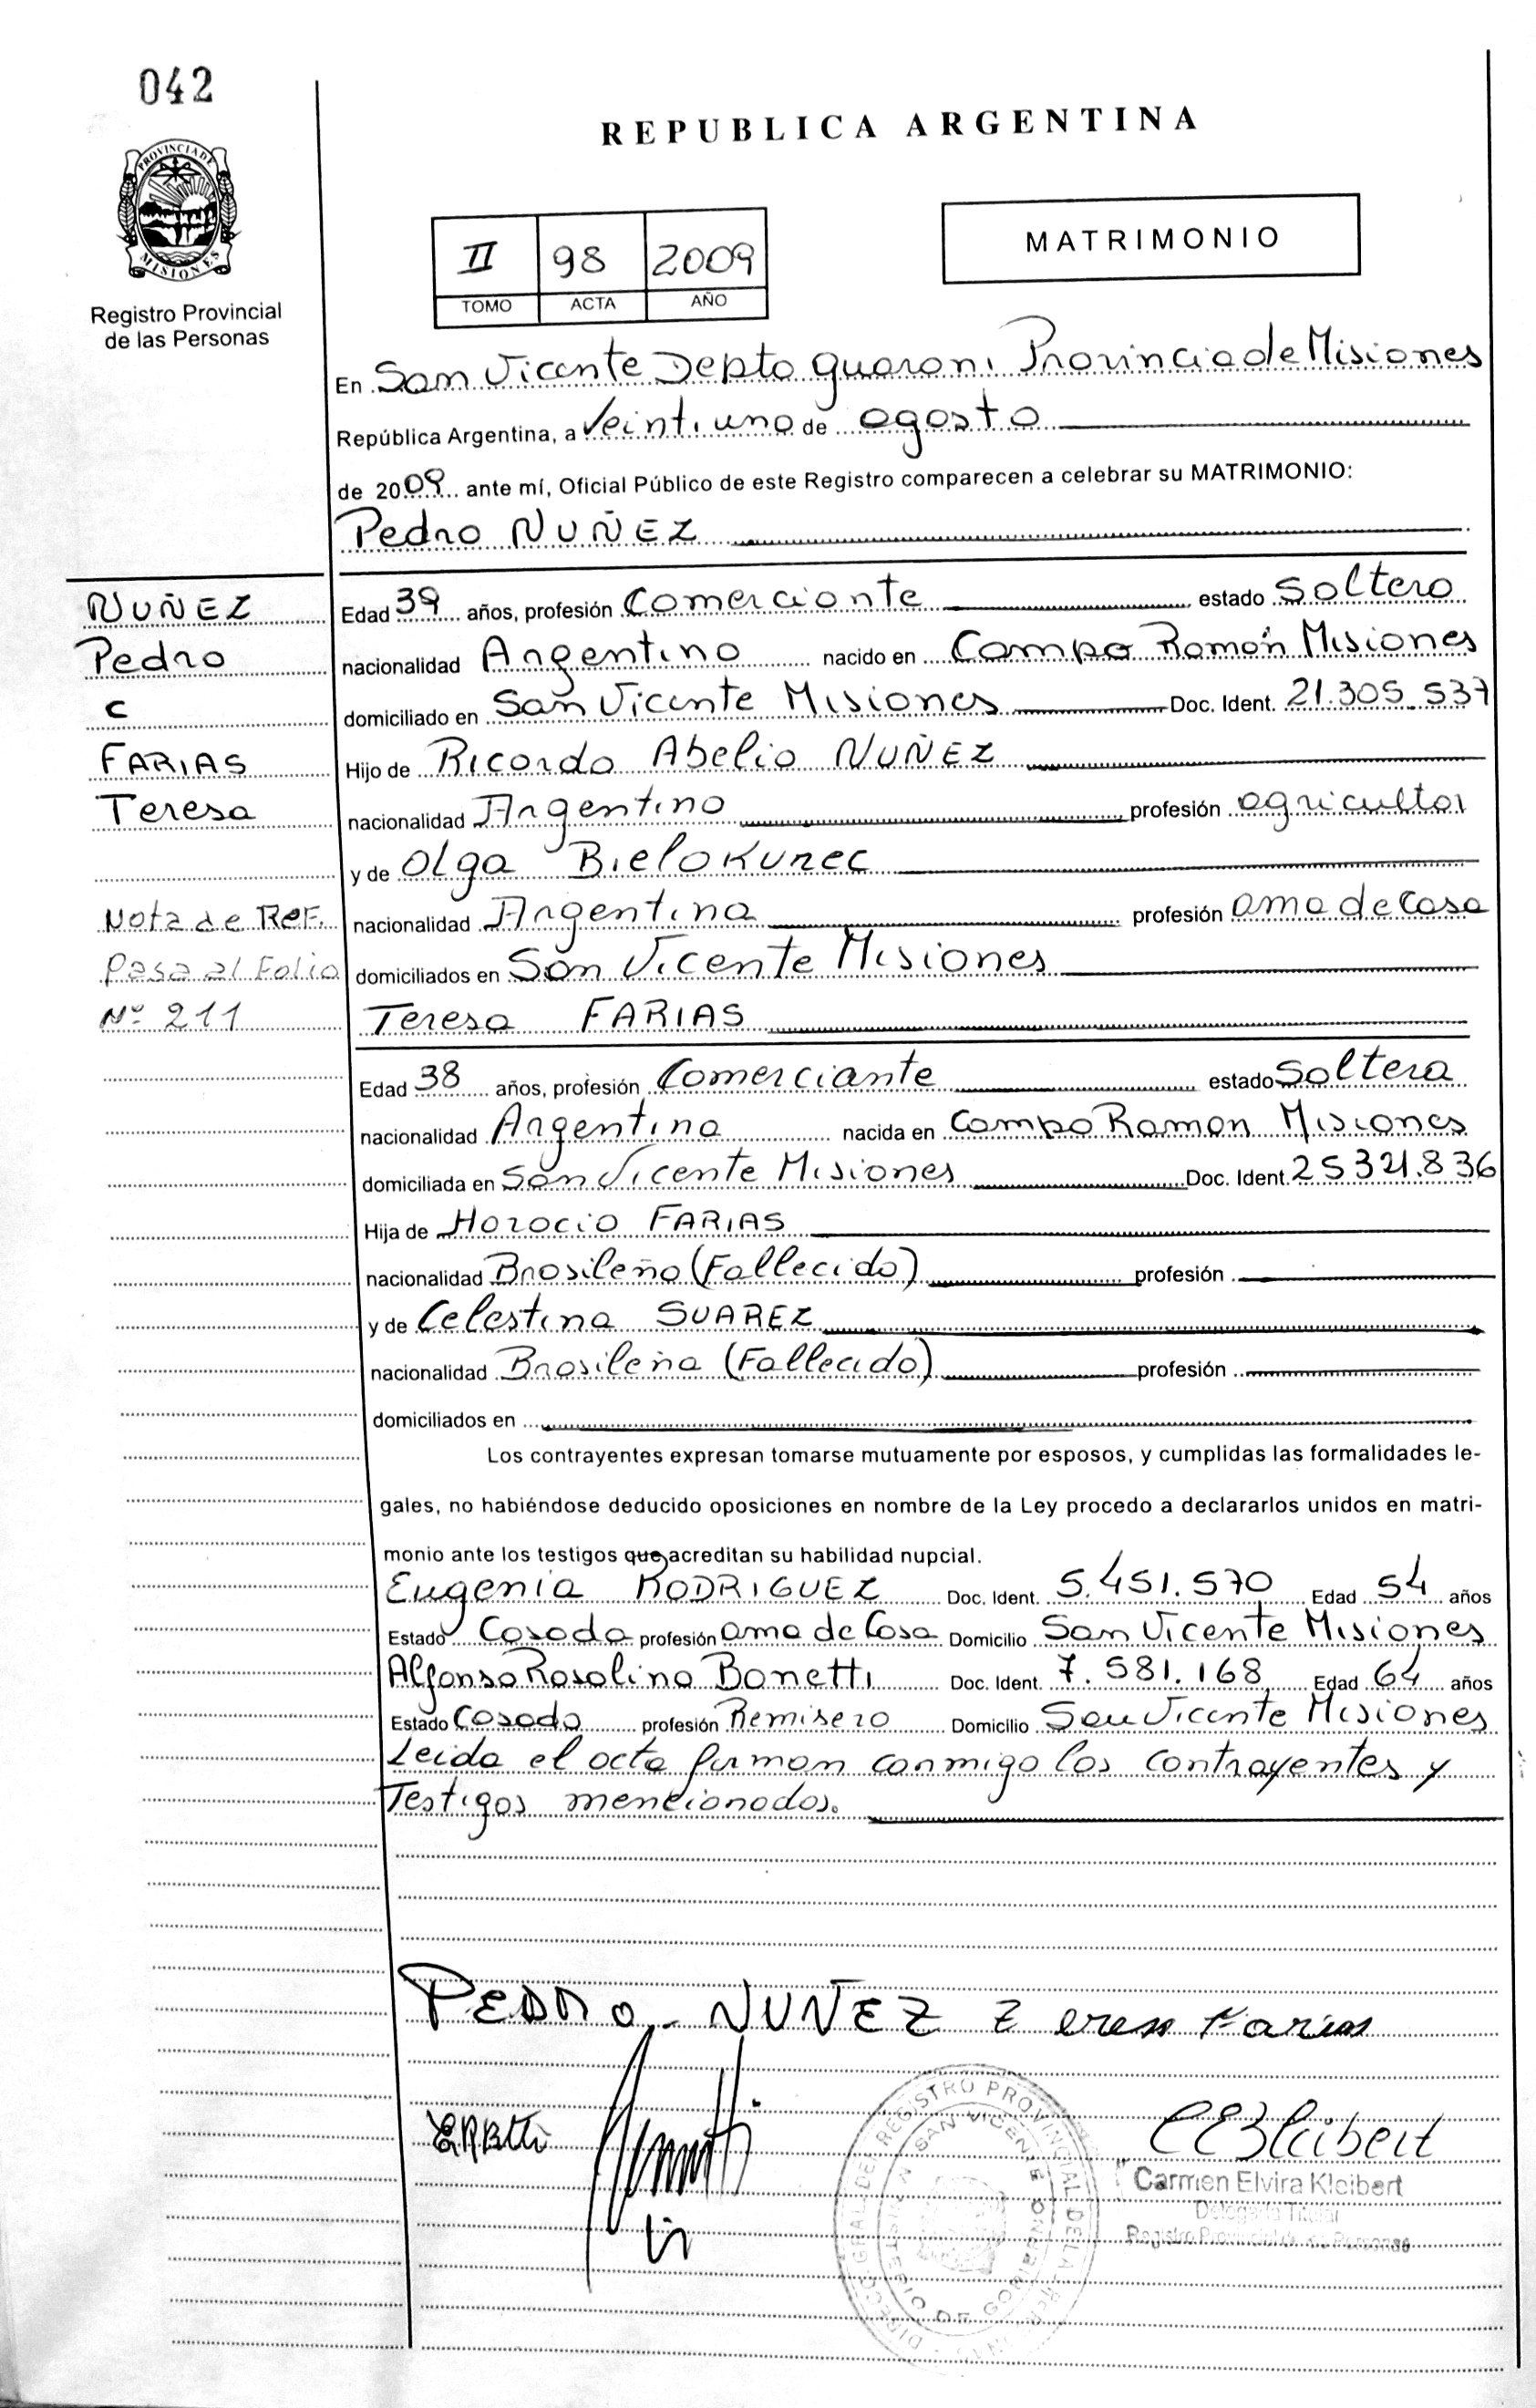 042
REPUBLICA ARGENTINA
PROVINCIA DE
MISIONES
Registro Provincial
de las Personas
II 98 2009
TOMO ACTA AÑO
MATRIMONIO
En San Vicente Depto guarani Provincia de Misiones
República Argentina, a Veintiuno de agosto
de 2009 ante mí, Oficial Público de este Registro comparecen a celebrar su MATRIMONIO:
Pedro NUÑEZ
NUÑEZ
Pedro
c
FARIAS
Teresa
Nota de Ref.
Pasa al Folio
Nº 211
Edad 39 años, profesión Comerciante estado Soltero
nacionalidad Argentino nacido en Campo Ramón Misiones
domiciliado en San Vicente Misiones Doc. Ident. 21.305.537
Hijo de Ricardo Abelio NUÑEZ
nacionalidad Argentino profesión agricultor
y de Olga Bielokurec
nacionalidad Argentina profesión ama de casa
domiciliados en San Vicente Misiones
Teresa FARIAS
Edad 38 años, profesión Comerciante estado Soltera
nacionalidad Argentina nacida en Campo Ramon Misiones
domiciliada en San Vicente Misiones Doc. Ident. 25321.836
Hija de Horocio FARIAS
nacionalidad Brasileño (Fallecido) profesión
y de Celestina SUAREZ
nacionalidad Brasileña (Fallecida) profesión
domiciliados en
Los contrayentes expresan tomarse mutuamente por esposos, y cumplidas las formalidades le-
gales, no habiéndose deducido oposiciones en nombre de la Ley procedo a declararlos unidos en matri-
monio ante los testigos que acreditan su habilidad nupcial.
Eugenia RODRIGUEZ Doc. Ident. 5.451.570 Edad 54 años
Estado Casada profesión ama de Casa Domicilio San Vicente Misiones
Alfonso Rosolino Bonetti Doc. Ident. 7.581.168 Edad 64 años
Estado Casado profesión Remisero Domicilio San Vicente Misiones
Leida el acta firman conmigo los contrayentes y
Testigos mencionados.
PEDRO NUÑEZ Teresa Farias
CEKleibert
Carmen Elvira Kleibert
Delegada Titular
Registro Provincial de las Personas